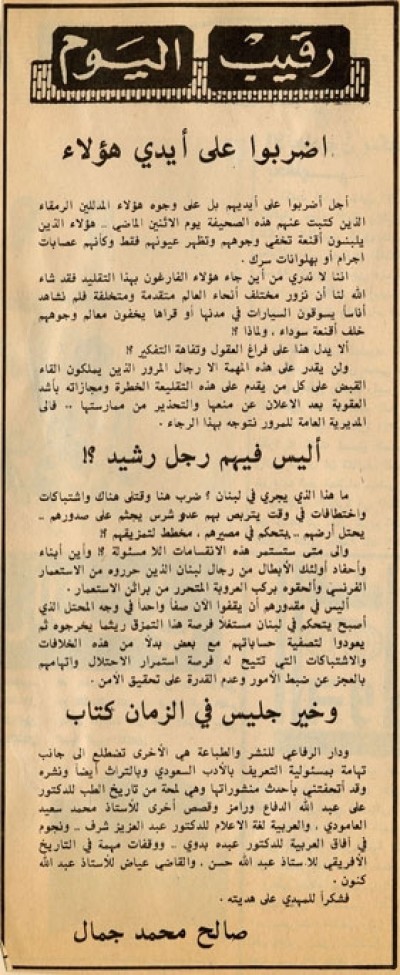 رقيب اليوم
اضربوا على أيدي هؤلاء
أجل أضربوا على أيديهم بل على وجوه هؤلاء المدللين الرمقاء
الذين كتبت عنهم هذه الصحيفة يوم الاثنين الماضي .. هؤلاء الذين
يلبسون أقنعة تخفي وجوههم وتظهر عيونهم فقط وكأنهم عصابات
اجرام أو بهلوانات سرك .
اننا لا ندري من أين جاء هؤلاء الفارغون بهذا التقليد فقد شاء
الله لنا أن نزور مختلف أنحاء العالم متقدمة ومتخلفة فلم نشاهد
أناساً يسوقون السيارات في مدنها أو قراها يخفون معالم وجوههم
خلف أقنعة سوداء ، ولماذا ؟!
ألا يدل هذا على فراغ العقول وتفاهة التفكير ؟!
ولن يقدر على هذه المهمة الا رجال المرور الذين يملكون القاء
القبض على كل من يقدم على هذه التقليعة الخطرة ومجازاته بأشد
العقوبة بعد الاعلان عن منعها والتحذير من ممارستها .. فالى
المديرية العامة للمرور نتوجه بهذا الرجاء .
أليس فيهم رجل رشيد ؟!
ما هذا الذي يجري في لبنان ؟ ضرب هنا وقتلى هناك واشتباكات
واختطافات في وقت يتربص بهم عدو شرس يجثم على صدورهم ..
يحتل أرضهم .. يتحكم في مصيرهم ، مخطط لتمزيقهم ؟!
والى متى ستستمر هذه الانقسامات اللا مسئولة ؟! وأين أبناء
وأحفاد أولئك الأبطال من رجال لبنان الذين حرروه من الاستعمار
الفرنسي وألحقوه بركب العروبة المتحرر من براثن الاستعمار .
أليس في مقدورهم أن يقفوا الآن صفاً واحداً في وجه المحتل الذي
أصبح يتحكم في لبنان مستغلاً فرصة هذا التمزق ريثما يخرجوه ثم
يعودوا لتصفية حساباتهم مع بعض بدلاً من هذه الخلافات
والاشتباكات التي تتيح له فرصة استمرار الاحتلال واتهامهم
بالعجز عن ضبط الأمور وعدم القدرة على تحقيق الأمن .
وخير جليس في الزمان كتاب
ودار الرفاعي للنشر والطباعة هي الأخرى تضطلع الى جانب
تهامة بمسئولية التعريف بالأدب السعودي وبالتراث أيضاً ونشره
وقد أتحفتني بأحدث منشوراتها وهي لمحة من تاريخ الطب للدكتور
على عبد الله الدفاع ورامز وقصص أخرى للأستاذ محمد سعيد
العامودي ، والعربية لغة الاعلام للدكتور عبد العزيز شرف .. ونجوم
في آفاق العربية للدكتور عبده بدوي .. ووقفات مهمة في التاريخ
الأفريقي للاستاذ عبد الله حسن ، والقاضي عياض للأستاذ عبد الله
كنون .
فشكراً للمهدي على هديته .
صالح محمد جمال